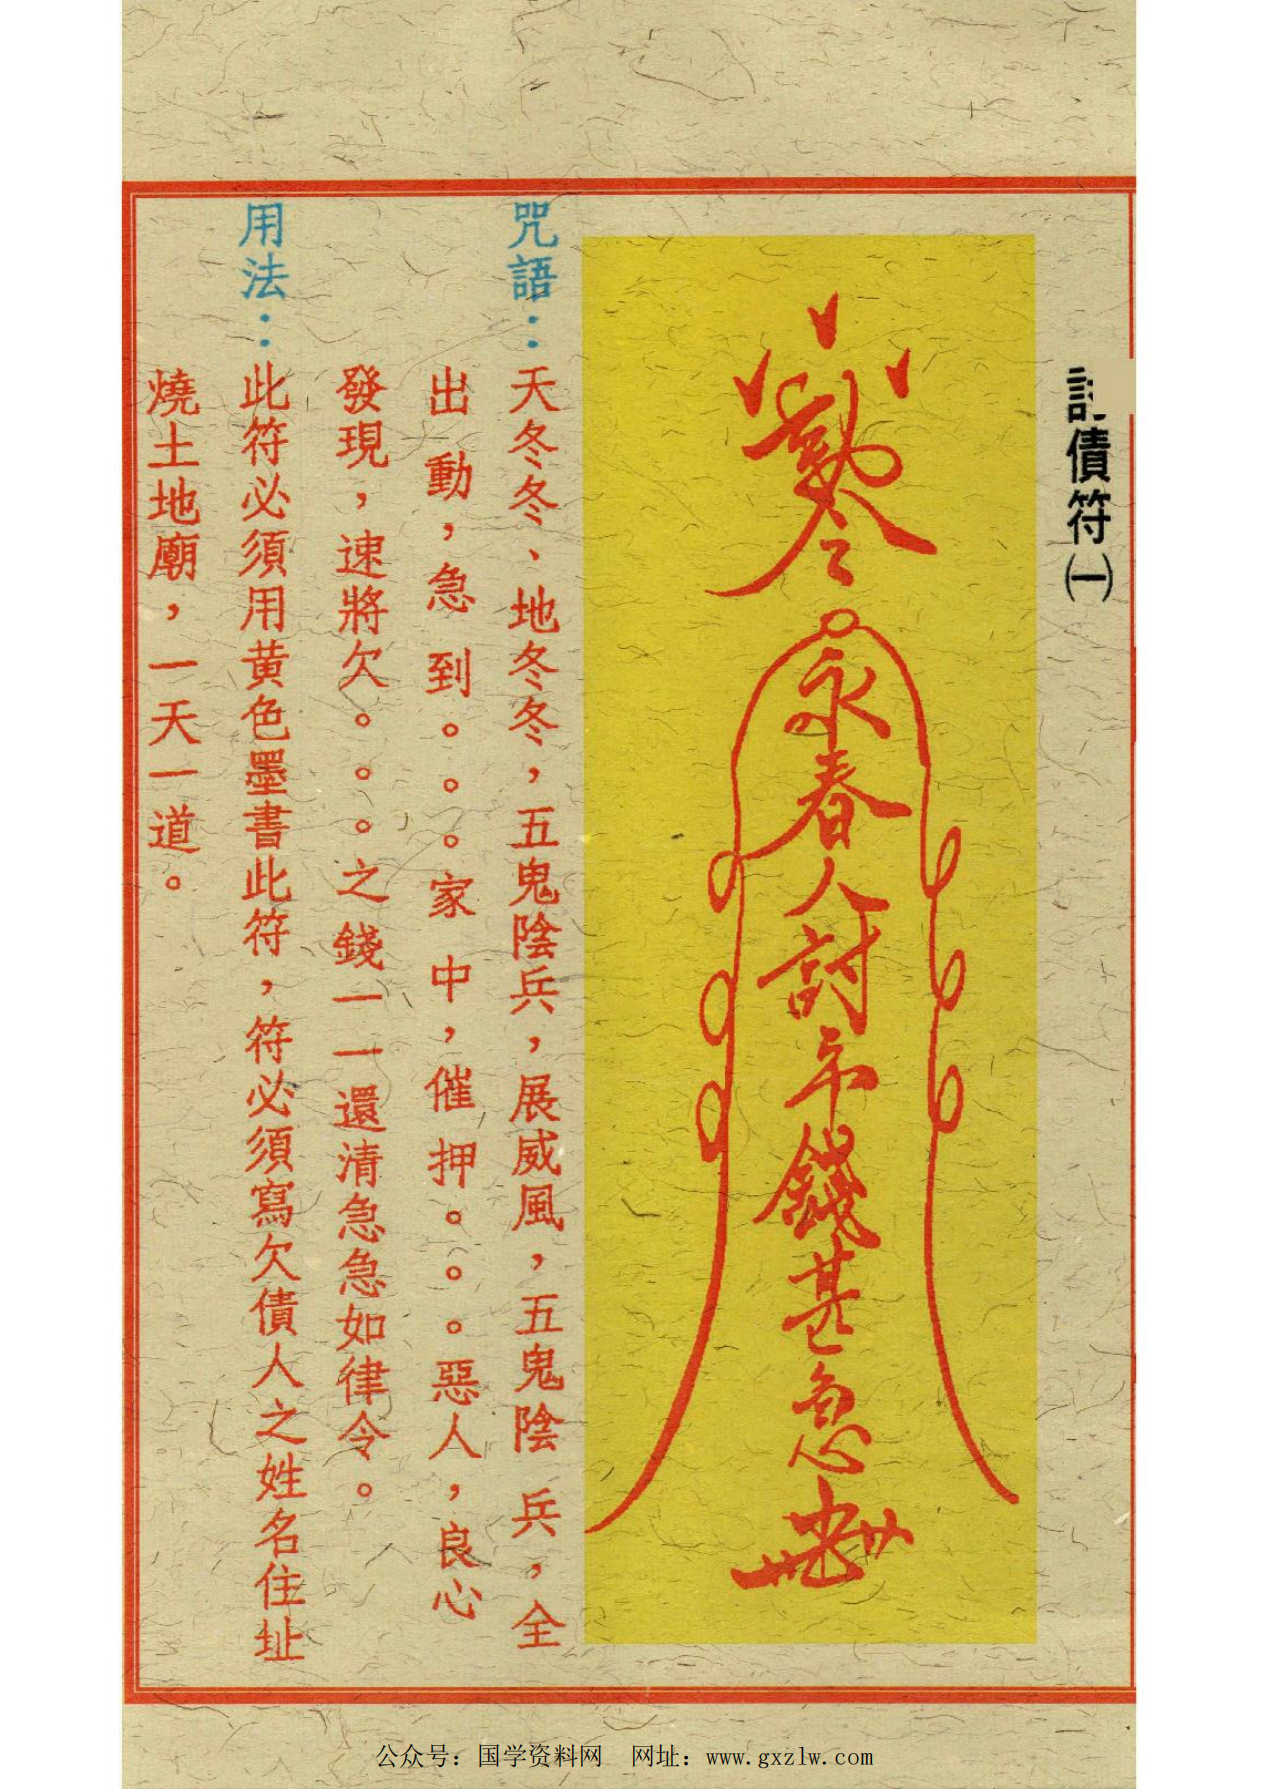 討債符㈠
敕令
永春人討 錢甚急
咒語：天冬冬、地冬冬，五鬼陰兵，展威風，五鬼陰兵，全
出動，急到。。。家中，催押。。。惡人，良心
發現，速將欠。。。之錢一一還清急急如律令。
用法：此符必須用黃色墨書此符，符必須寫欠債人之姓名住址
燒土地廟，一天一道。
公众号：国学资料网　网址：www.gxzlw.com